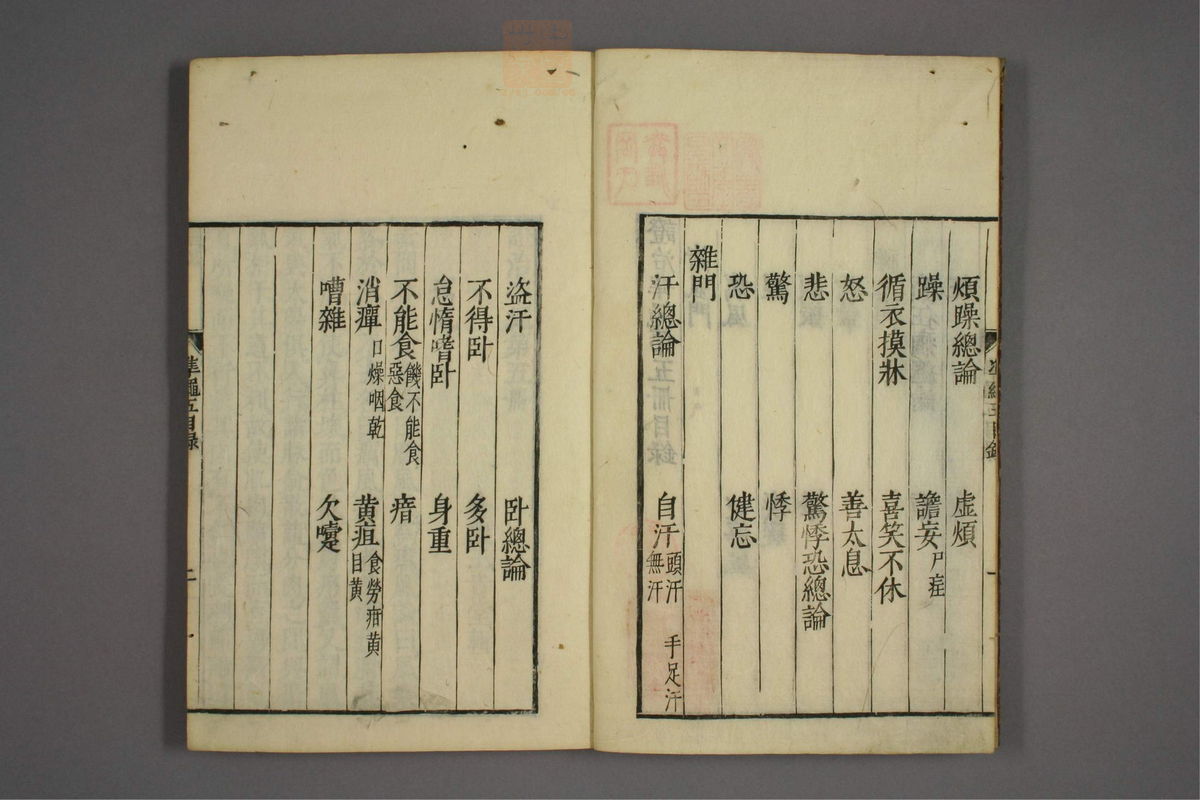 煩躁總論 虛煩
躁 譫妄
循衣摸牀 喜笑不休
怒 善太息
悲 驚悸恐總論
驚 悸
恐 健忘
雜門
汗總論 自汗 頭汗 手足汗 無汗
盜汗 卧總論
不得卧 多卧
怠惰嗜卧 身重
不能食 饑不能食 惡食 瘖
消癉 口燥咽乾 黄疸 食勞疳黄 目黄
嘈雜 欠嚏
準繩五目録